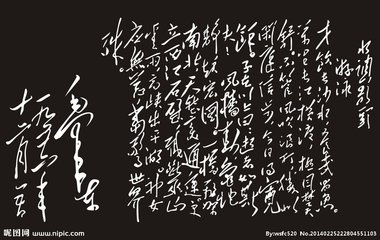 水调歌头
游泳
才饮长沙水又食武昌
鱼万里长江横渡极目楚天
舒不管风吹浪打胜似
闲庭信步今日得宽
馀子在川上曰逝者如斯
夫风樯动龟蛇
静起宏图一桥飞架
南北天堑变通途更
立西江石壁截断巫山
云雨高峡出平湖神女
应无恙当惊世界
殊
毛泽东
一九五六年
十二月五日
昵图网 www.nipic.com
By:wsfc520 NO.20140225222804551103